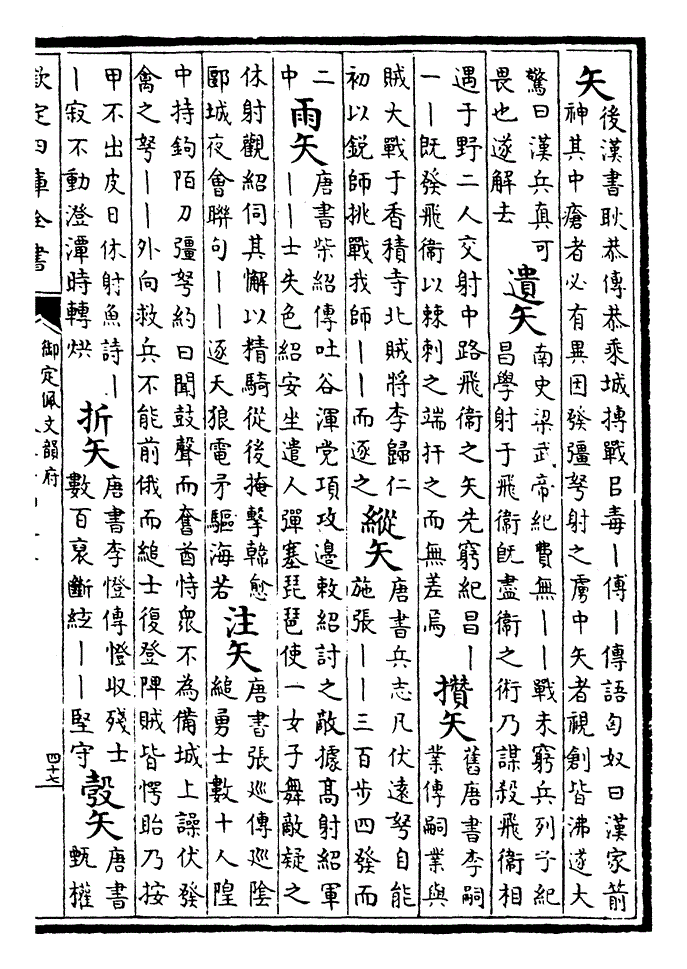 矢
後漢書耿恭傳恭乘城搏戰㠯毒丨傳丨傳語匈奴曰漢家箭
神其中瘡者必有異因發彊弩射之虜中矢者視創皆沸遂大
驚曰漢兵真可
畏也遂解去
遺矢
南史梁武帝紀費無丨丨戰未窮兵列子紀
昌學射于飛衞既盡衞之術乃謀殺飛衞相
遇于野二人交射中路飛衞之矢先窮紀昌丨
一丨既發飛衞以棘刺之端扞之而無差焉
攢矢
舊唐書李嗣
業傳嗣業與
賊大戰于香積寺北賊將李歸仁
初以鋭師挑戰我師丨丨而逐之
縱矢
唐書兵志凡伏遠弩自能
施張丨丨三百步四發而
二
中
雨矢
唐書柴紹傳吐谷渾党項攻邊敕紹討之敵據高射紹軍
丨丨士失色紹安坐遣人彈塞琵琶使一女子舞敵疑之
休射觀紹伺其懈以精騎從後掩擊韓愈
郾城夜會聯句丨丨逐天狼電矛驅海若
注矢
唐書張巡傳巡陰
縋勇士數十人隍
中持鉤陌刀彊弩約曰聞鼓聲而奮酋恃衆不為備城上譟伏發
禽之弩丨丨外向救兵不能前俄而縋士復登陴賊皆愕眙乃按
甲不出皮日休射魚詩丨
丨寂不動澄潭時轉烘
折矢
唐書李憕傳憕收殘士
數百裒斷絃丨丨堅守
彀矢
唐書
甄權
欽定四庫全書
御定佩文韻府
四十七